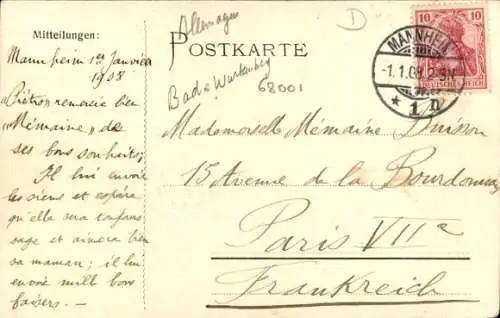 Mitteilungen:
Mannheim 1er Janvier
1908
"Piétro" remercie bien
"Mémaine" de
ses bons souhaits;
Il lui envoie
les siens et espère
qu'elle sera toujours
sage et aimera bien
sa maman; il lui
envoie mill bons
baisers. —
Allemagne
D
POSTKARTE
Bade Wurtemberg
68001
MANNHEIM
-1.1.08. 2-3N
* 1 n
10 10
DEUTSCHES REICH
Mademoiselle Mémaine
15 Avenue de la Bourdonnay
Paris VIIe
Frankreich